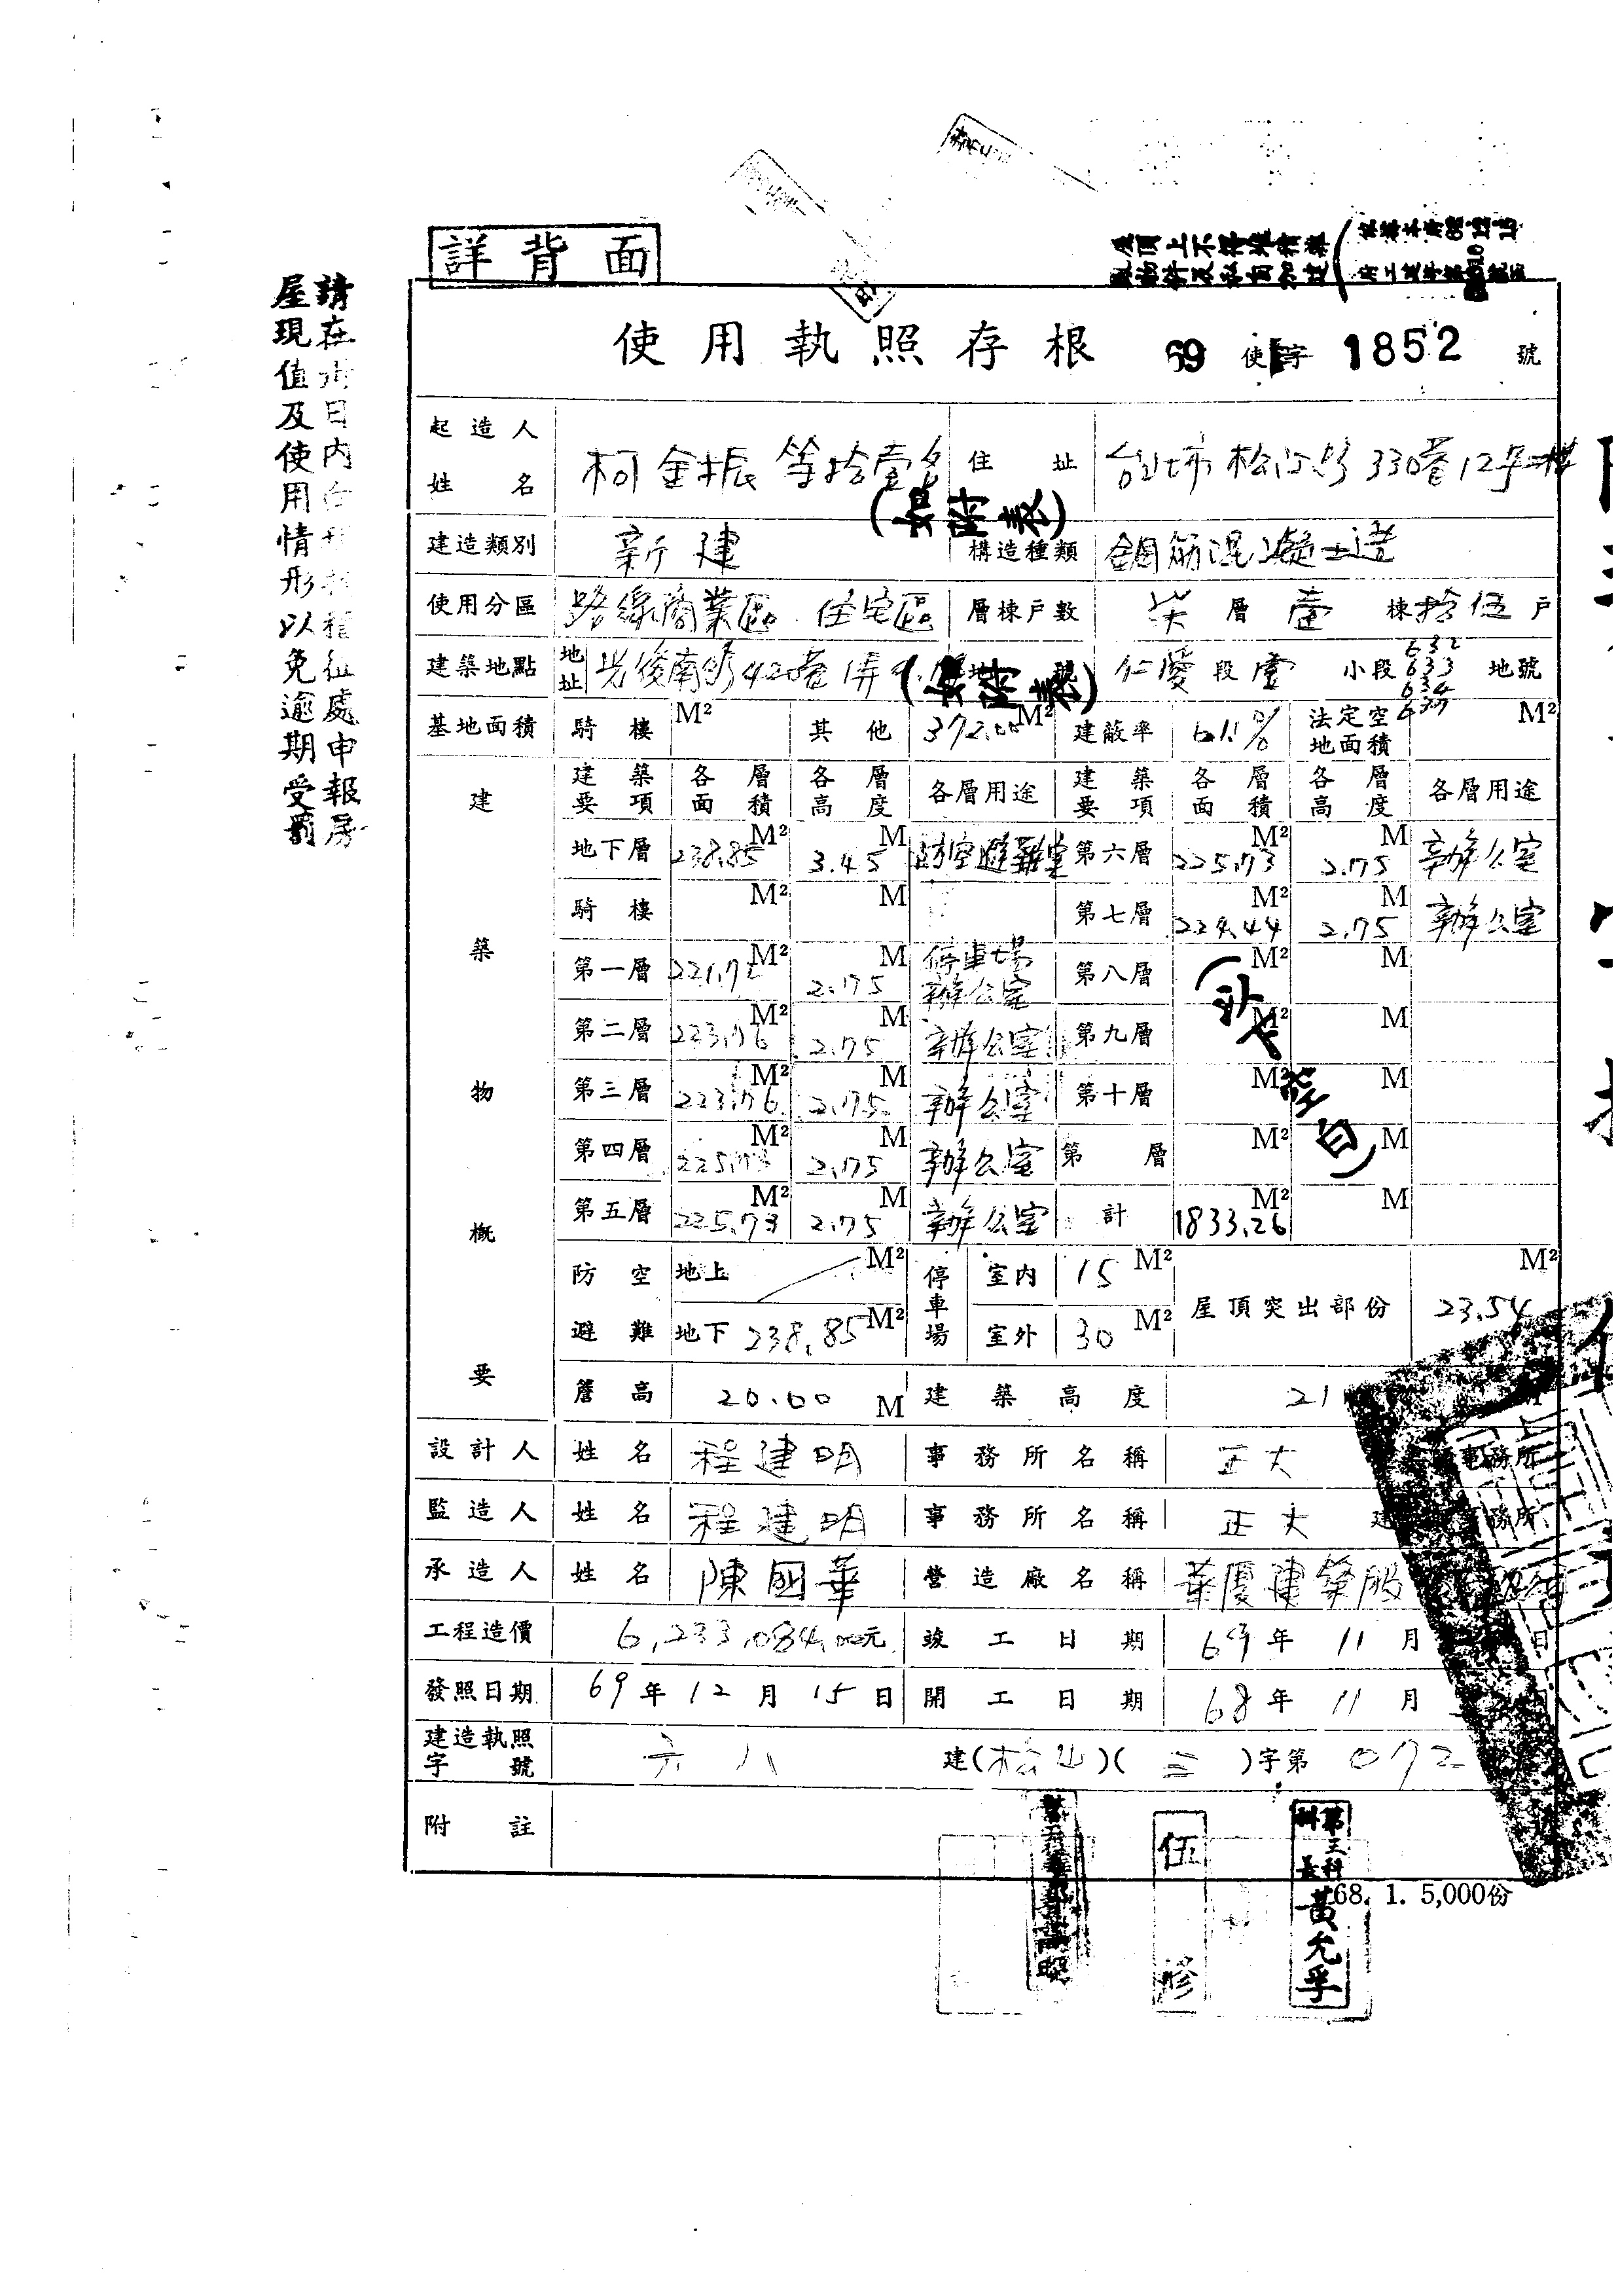 詳背面
使用執照存根 69 使字 1852 號
請在卅日內
申報房
屋現值及使用情形以免逾期受罰
起造人姓名 柯金振等拾壹名 (如附表) 住址 台北市松江路330巷12号
建造類別 新建 構造種類 鋼筋混凝土造
使用分區 路線商業區 住宅區 層棟戶數 柒層壹棟拾伍戶
建築地點 地址 光復南路420巷 弄 (如附表) 地號 仁愛段壹小段 632 633 634 地號
基地面積 騎樓 M² 其他 372.00 M² 建蔽率 61.1% 法定空地面積 M²
建築物概要
建築要項 各層面積 各層高度 各層用途 建築要項 各層面積 各層高度 各層用途
地下層 238.85 M² 3.45 M 防空避難室 第六層 225.73 M² 2.75 M 辦公室
騎樓 M² M 第七層 224.44 M² 2.75 M 辦公室
第一層 221.72 M² 2.75 M 停車場 辦公室 第八層 M² M
第二層 223.76 M² 2.75 M 辦公室 第九層 M² M
第三層 223.76 M² 2.75 M 辦公室 第十層 M² M
第四層 225.73 M² 2.75 M 辦公室 第 層 M² M
(以下空白)
第五層 225.73 M² 2.75 M 辦公室 計 1833.26 M² M
防空避難 地上 M² 停車場 室內 15 M² 屋頂突出部份 23.54 M²
地下 238.85 M² 室外 30 M²
簷高 20.00 M 建築高度 21
設計人 姓名 程建明 事務所名稱 正大 事務所
監造人 姓名 程建明 事務所名稱 正大 建 務所
承造人 姓名 陳國華 營造廠名稱 華廈建築股
工程造價 6,233,084.00元 竣工日期 69年11月 日
發照日期 69年12月15日 開工日期 68年11月
建造執照字號 六八 建(松山)(三)字第 072
附註
68. 1. 5,000份
伍
第三科
科長 黃允孚